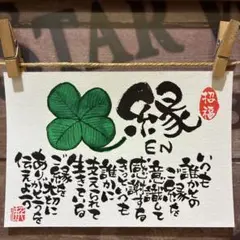 STAR
縁
EN
招福
いつも
誰かとの
ご縁を
意識して
感謝する
きっといつも
誰かに
支えられて
生きている
ご縁を大切に
ありがとうを
伝えよう